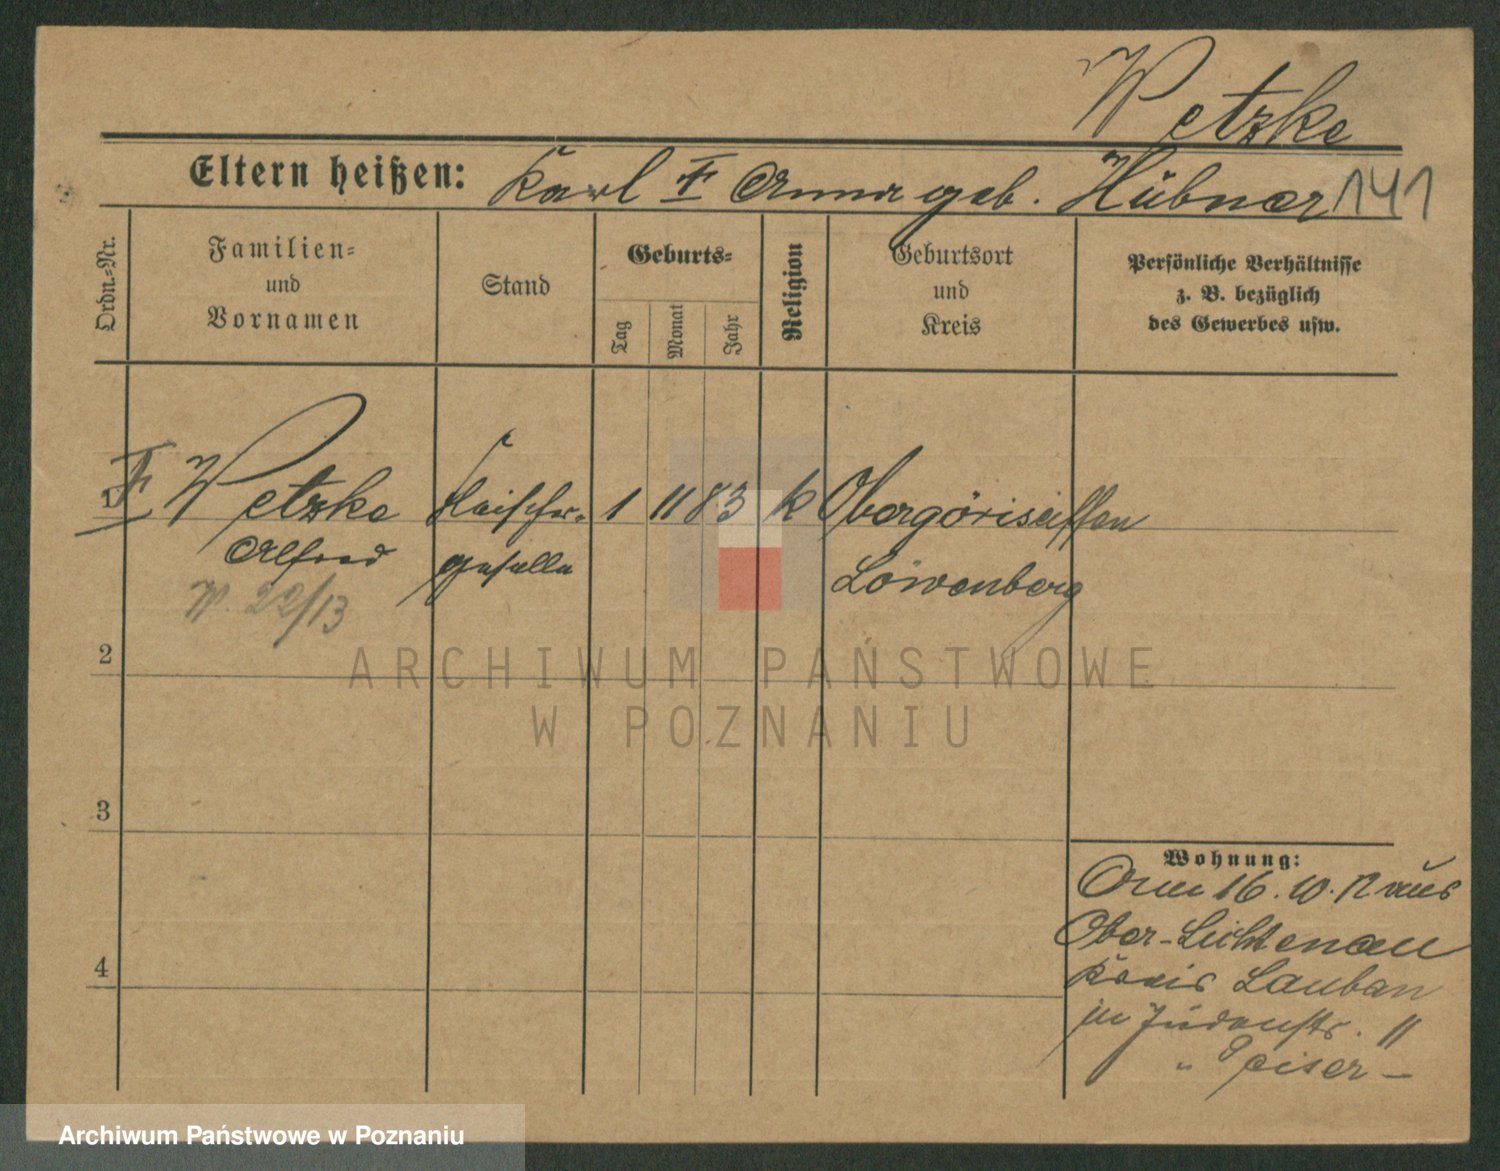 Wetzke
Eltern heißen: Karl Anna geb. Hübner 141
Ordn.-Nr.
Familien-
und
Vornamen
Stand
Geburts-
Tag
Monat
Jahr
Religion
Geburtsort
und
Kreis
Persönliche Verhältnisse
z. B. bezüglich
des Gewerbes usw.
1 Wetzke Fleischer- 1 11 83 k Obergörisseiffen
Alfred geselle Löwenberg
W. 22/13
2
3
4
Wohnung:
16. 10. 12 aus
Ober-Lichtenau
Kreis Lauban
in Judenstr. 11
" Peiser -
ARCHIWUM PAŃSTWOWE
W POZNANIU
Archiwum Państwowe w Poznaniu